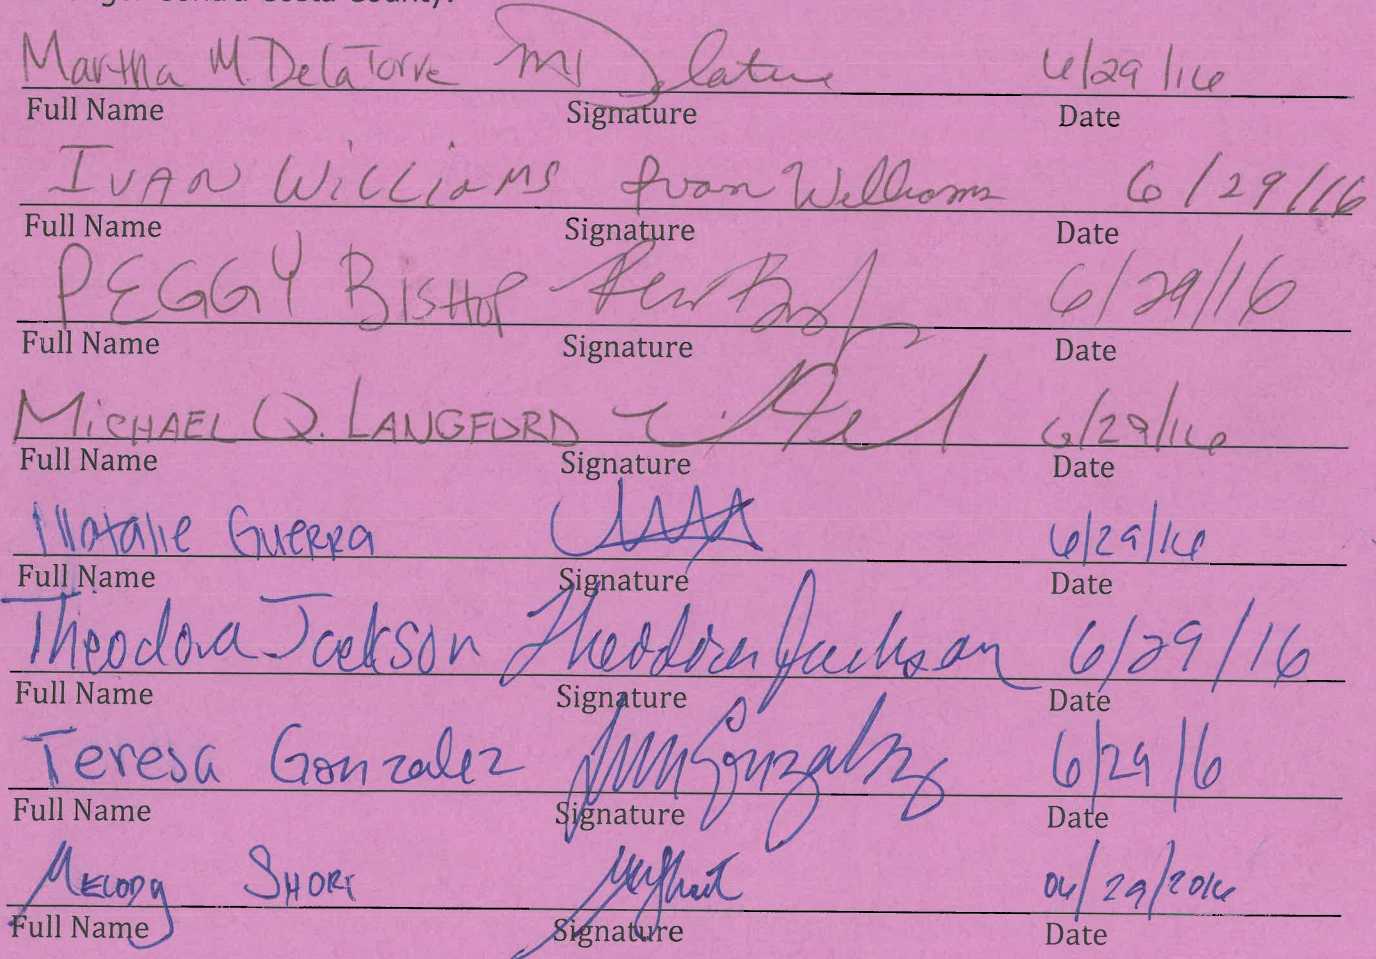 Contra Costa County).
Martha M. DelaTorre 6/29/16
Full Name Signature Date
IVAN WilliaMS Ivan Williams 6/29/16
Full Name Signature Date
PEGGY BisHop 6/29/16
Full Name Signature Date
MiCHAEL Q. LANGFORD 6/29/16
Full Name Signature Date
Natalie GuERRa 6/29/16
Full Name Signature Date
Theodora Jackson Theodora Jackson 6/29/16
Full Name Signature Date
Teresa Gonzalez Gonzalez 6/29/16
Full Name Signature Date
MELODY SHORT 06/29/2016
Full Name Signature Date